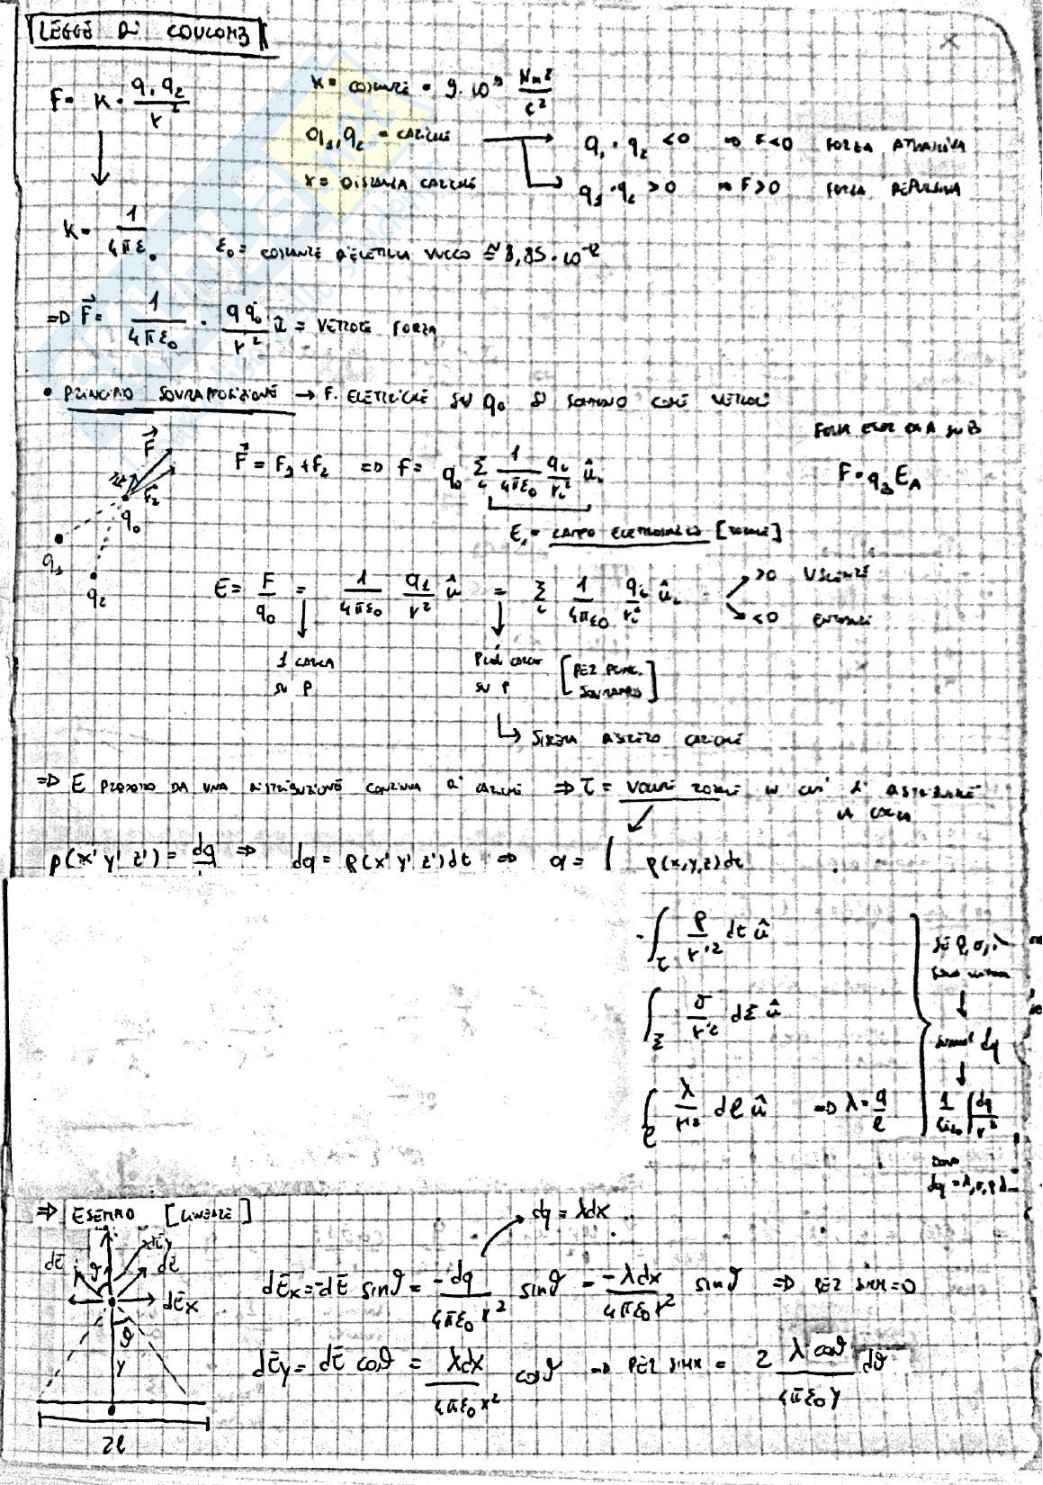 LEGGE DI COULOMB
F = K · q₁ q₂ / r²
K = COSTANTE = 9·10⁹ Nm²/C²
q₁, q₂ = CARICHE → q₁ · q₂ < 0 ⇒ F<0 FORZA ATTRATTIVA
r = DISTANZA CARICHE → q₁ · q₂ > 0 ⇒ F>0 FORZA REPULSIVA
K = 1 / 4πε₀
ε₀ = COSTANTE DIELETTRICA VUOTO ≅ 8,85 · 10⁻¹²
⇒ F⃗ = 1/4πε₀ · q q₀/r² û = VETTORE FORZA
• PRINCIPIO SOVRAPPOSIZIONE → F. ELETTRICHE SU q₀ SI SOMMANO COME VETTORI
FORZA ESER DA A SU B
F⃗ = F₁ + F₂ ⇒ F = q₀ Σᵢ 1/4πε₀ qᵢ/rᵢ² ûᵢ
F = q_B E_A
F⃗
F₂
q₀
q₁
q₂
E, = CAMPO ELETTROSTATICO [TOTALE]
E = F/q₀ = 1/4πε₀ q₁/r² û = Σᵢ 1/4πε₀ qᵢ/rᵢ² ûᵢ
>0 USCENTE
<0 ENTRANTE
1 CARICA
SU P
PIÙ CARICHE
SU P
[PER PRINC.
SOVRAPPO]
SISTEMA DISCRETO CARICHE
⇒ E PRODOTTO DA UNA DISTRIBUZIONE CONTINUA DI CARICHE ⇒ τ = VOLUME TOTALE IN CUI SI DISTRIBUISCE
LA CARICA
ρ(x' y' z') = dq ⇒ dq = ρ(x' y' z') dτ ⇒ q = ∫ ρ(x,y,z) dτ
∫τ ρ/r'² dτ û
SE ρ, σ, λ
∫Σ σ/r'² dΣ û
dq
∫ℓ λ/r² dℓ û ⇒ λ = q/ℓ
1/4πε₀ ∫ dq/r²
DOVE
⇒ ESEMPIO [LINEARE]
dq = λdx
dE
ϑ
dEy
dE
dEx
ϑ
y
2ℓ
dEx = -dE sinϑ = -dq/4πε₀r² sinϑ = -λdx/4πε₀r² sinϑ ⇒ PER SIMM = 0
dEy = dE cosϑ = λdx/4πε₀x² cosϑ ⇒ PER SIMM = 2 λ cosϑ/4πε₀y dϑ